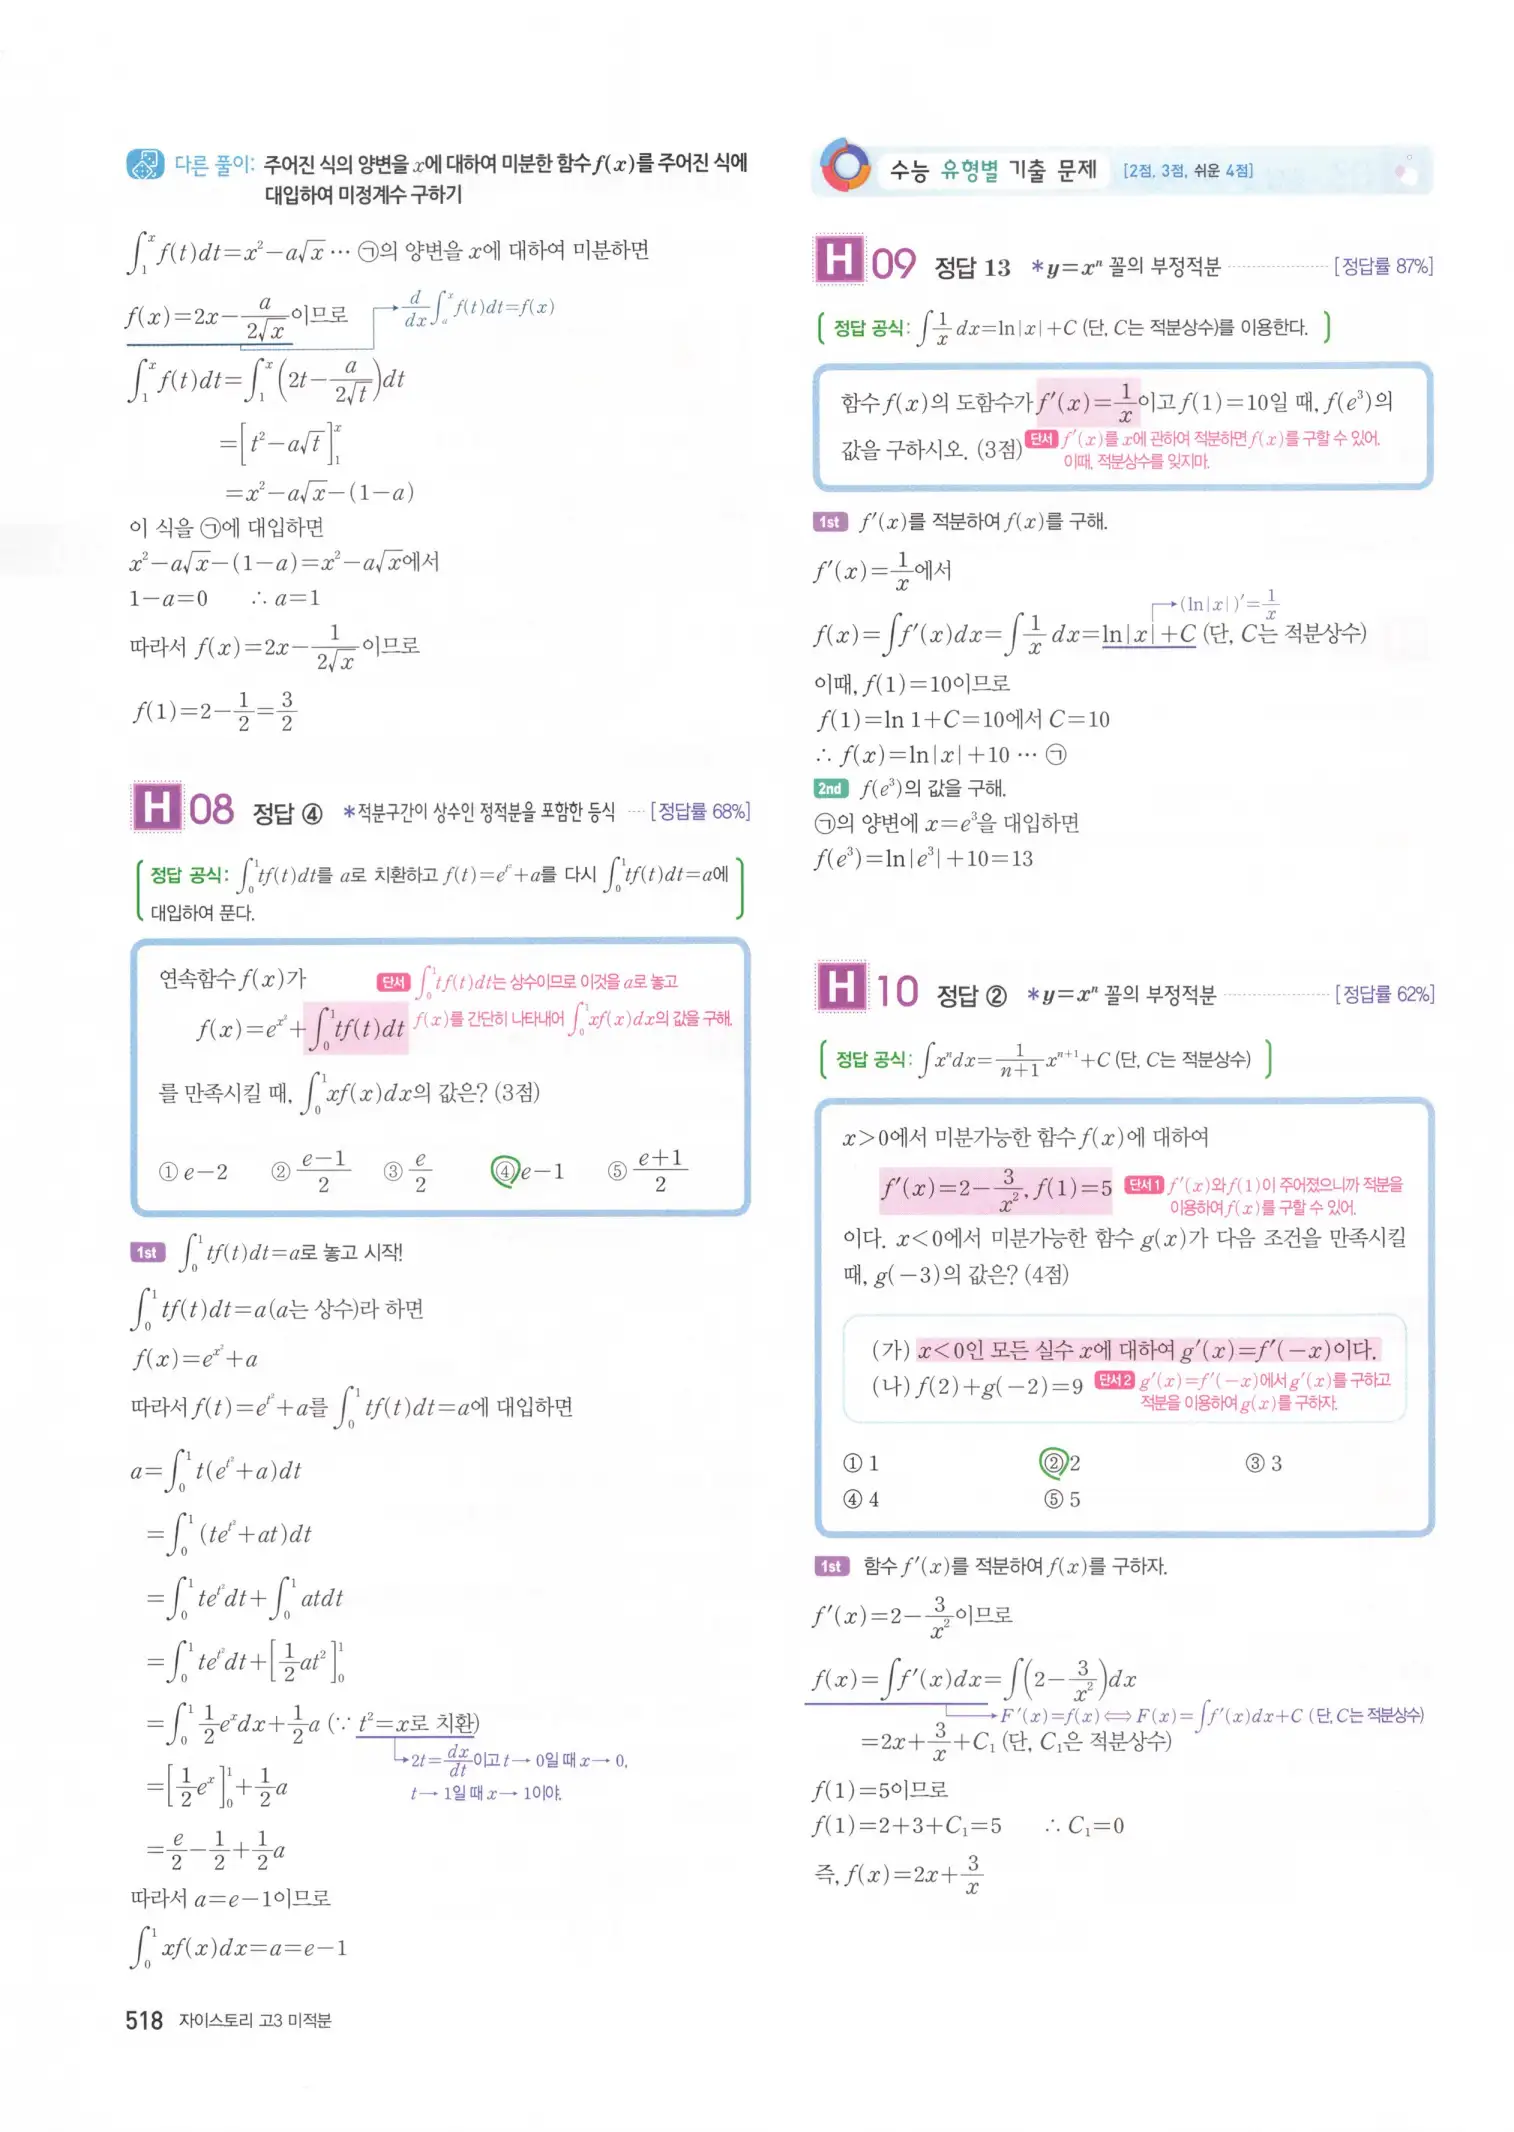 다른 풀이: 주어진 식의 양변을 x에 대하여 미분한 함수 f(x)를 주어진 식에
대입하여 미정계수 구하기
∫₁ˣ f(t)dt=x²−a√x ⋯ ㉠의 양변을 x에 대하여 미분하면
f(x)=2x−a/(2√x)이므로
d/dx ∫ₐˣ f(t)dt=f(x)
∫₁ˣ f(t)dt=∫₁ˣ (2t−a/(2√t))dt
=[t²−a√t]₁ˣ
=x²−a√x−(1−a)
이 식을 ㉠에 대입하면
x²−a√x−(1−a)=x²−a√x에서
1−a=0 ∴ a=1
따라서 f(x)=2x−1/(2√x)이므로
f(1)=2−1/2=3/2
H 08 정답 ④ *적분구간이 상수인 정적분을 포함한 등식 [정답률 68%]
정답 공식: ∫₀¹ tf(t)dt를 a로 치환하고 f(t)=e^(t²)+a를 다시 ∫₀¹ tf(t)dt=a에
대입하여 푼다.
연속함수 f(x)가
단서 ∫₀¹ tf(t)dt는 상수이므로 이것을 a로 놓고
f(x)를 간단히 나타내어 ∫₀¹ xf(x)dx의 값을 구해.
f(x)=e^(x²)+∫₀¹ tf(t)dt
를 만족시킬 때, ∫₀¹ xf(x)dx의 값은? (3점)
① e−2 ② (e−1)/2 ③ e/2 ④ e−1 ⑤ (e+1)/2
1st ∫₀¹ tf(t)dt=a로 놓고 시작!
∫₀¹ tf(t)dt=a(a는 상수)라 하면
f(x)=e^(x²)+a
따라서 f(t)=e^(t²)+a를 ∫₀¹ tf(t)dt=a에 대입하면
a=∫₀¹ t(e^(t²)+a)dt
=∫₀¹ (te^(t²)+at)dt
=∫₀¹ te^(t²)dt+∫₀¹ atdt
=∫₀¹ te^(t²)dt+[1/2 at²]₀¹
=∫₀¹ 1/2 eˣdx+1/2 a (∵ t²=x로 치환)
2t=dx/dt이고 t → 0일 때 x → 0,
t → 1일 때 x → 1이야.
=[1/2 eˣ]₀¹+1/2 a
=e/2−1/2+1/2 a
따라서 a=e−1이므로
∫₀¹ xf(x)dx=a=e−1
518 자이스토리 고3 미적분
수능 유형별 기출 문제 [2점, 3점, 쉬운 4점]
H 09 정답 13 *y=xⁿ 꼴의 부정적분 [정답률 87%]
정답 공식: ∫1/x dx=ln|x|+C (단, C는 적분상수)를 이용한다.
함수 f(x)의 도함수가 f′(x)=1/x이고 f(1)=10일 때, f(e³)의
값을 구하시오. (3점)
단서 f′(x)를 x에 관하여 적분하면 f(x)를 구할 수 있어.
이때, 적분상수를 잊지마.
1st f′(x)를 적분하여 f(x)를 구해.
f′(x)=1/x에서
(ln|x|)′=1/x
f(x)=∫f′(x)dx=∫1/x dx=ln|x|+C (단, C는 적분상수)
이때, f(1)=10이므로
f(1)=ln 1+C=10에서 C=10
∴ f(x)=ln|x|+10 ⋯ ㉠
2nd f(e³)의 값을 구해.
㉠의 양변에 x=e³을 대입하면
f(e³)=ln|e³|+10=13
H 10 정답 ② *y=xⁿ 꼴의 부정적분 [정답률 62%]
정답 공식: ∫xⁿdx=1/(n+1) xⁿ⁺¹+C (단, C는 적분상수)
x>0에서 미분가능한 함수 f(x)에 대하여
f′(x)=2−3/x², f(1)=5
단서1 f′(x)와 f(1)이 주어졌으니까 적분을
이용하여 f(x)를 구할 수 있어.
이다. x<0에서 미분가능한 함수 g(x)가 다음 조건을 만족시킬
때, g(−3)의 값은? (4점)
(가) x<0인 모든 실수 x에 대하여 g′(x)=f′(−x)이다.
(나) f(2)+g(−2)=9
단서2 g′(x)=f′(−x)에서 g′(x)를 구하고
적분을 이용하여 g(x)를 구하자.
① 1 ② 2 ③ 3
④ 4 ⑤ 5
1st 함수 f′(x)를 적분하여 f(x)를 구하자.
f′(x)=2−3/x²이므로
f(x)=∫f′(x)dx=∫(2−3/x²)dx
F′(x)=f(x)⟺F(x)=∫f′(x)dx+C (단, C는 적분상수)
=2x+3/x+C₁ (단, C₁은 적분상수)
f(1)=5이므로
f(1)=2+3+C₁=5 ∴ C₁=0
즉, f(x)=2x+3/x